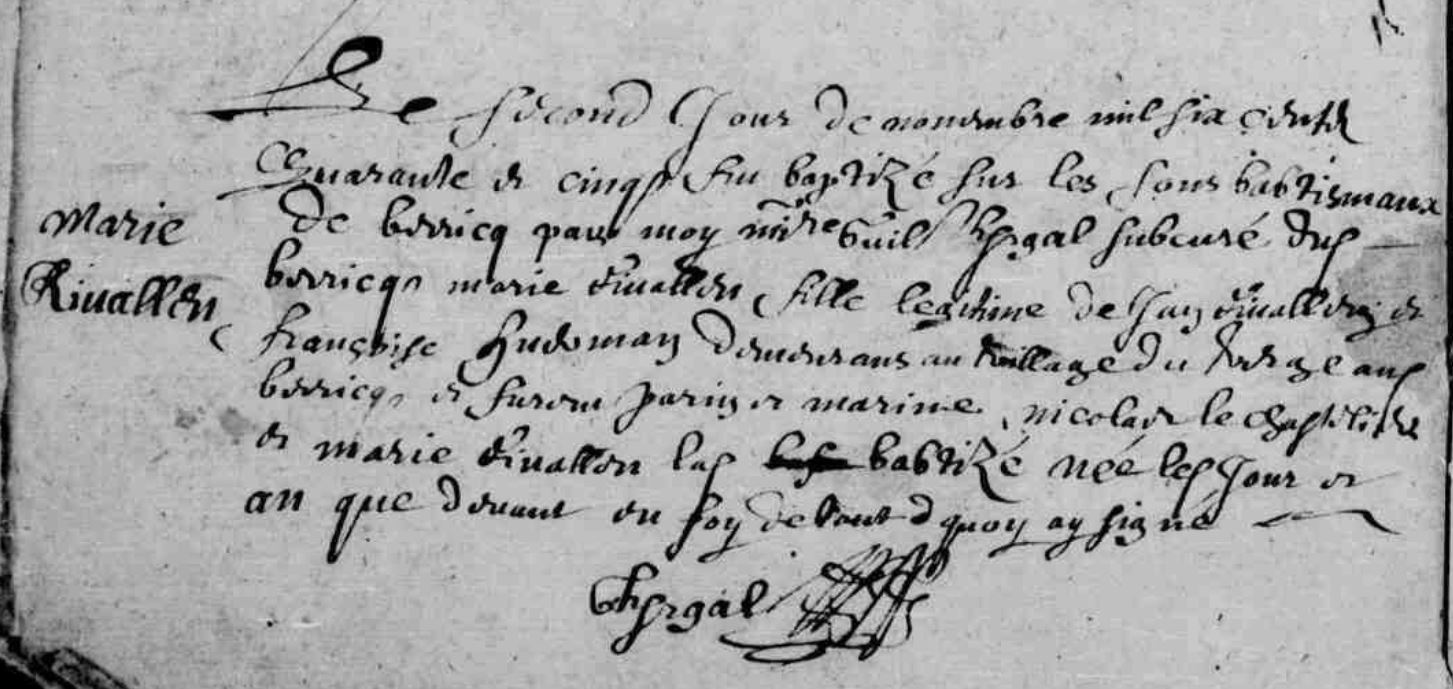 Le second Jour de novembre mil six cents
Marie
Rivallen
Quarante et cinq fu baptizé sur les fons babtismaux
de berricq par moy mire Guil subcuré dud
berricq marie rivallen fille legitime de Jan rivallen et
françoise demeurans au village du aud
berricq et furent parin et marine nicolas le
et marie rivallen lad babtizé née lesd Jour et
an que devant en foy de tout d quoy ay signé